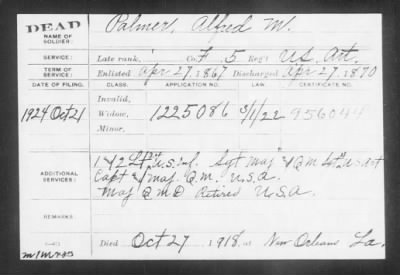 DEAD
NAME OF SOLDIER:
Palmer, Alfred M.
SERVICE:
Late rank, Co. F 5 Reg't U.S. Art.
TERM OF SERVICE:
Enlisted Apr 27, 1867 Discharged Apr 27, 1870
DATE OF FILING. CLASS. APPLICATION NO. LAW. CERTIFICATE NO.
Invalid,
1924 Oct 21 Widow, 1225086 3/1/22 956044
Minor,
U.S. Inf. Sgt Maj & Q.M. Sgt U.S. Art
ADDITIONAL SERVICES:
Capt & Maj. Q.M. U.S.A.
Maj Q.M.D. Retired U.S.A.
REMARKS:
Died Oct 27, 1918, at New Orleans La.